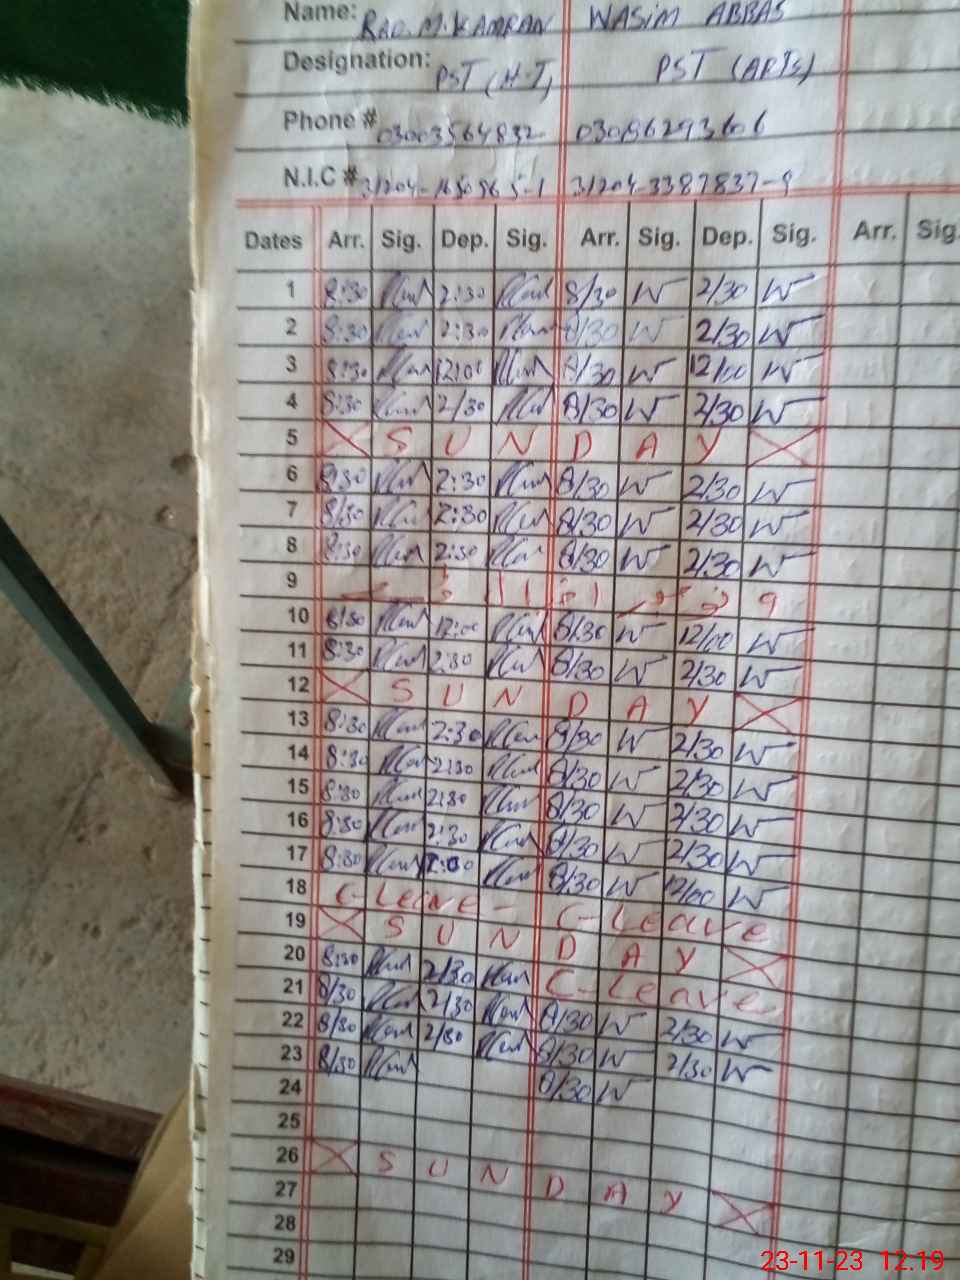 Name: RAO. M. KAMRAN WASIM ABBAS
Designation: PST (H.T) PST (ARTS)
Phone # 03003564832 03086293606
N.I.C # 31204-3387837-9
Dates Arr. Sig. Dep. Sig. Arr. Sig. Dep. Sig. Arr. Sig.
1 8:30 2:30 8/30 W 2/30 W
2 8:30 2:30 8/30 W 2/30 W
3 8:30 12:00 8/30 W 12/00 W
4 8:30 2/30 8/30 W 2/30 W
5 S U N D A Y
6 8:30 2:30 8/30 W 2/30 W
7 8/30 2:30 8/30 W 2/30 W
8 8:30 2:30 8/30 W 2/30 W
9
10 8/30 12:00 8/30 W 12/00 W
11 8:30 2:30 8/30 W 2/30 W
12 S U N D A Y
13 8:30 2:30 8/30 W 2/30 W
14 8:30 2:30 8/30 W 2/30 W
15 8:30 2:30 8/30 W 2/30 W
16 8:30 2:30 8/30 W 2/30 W
17 8:30 8/30 W 12/00 W
18 C-Leave - C-Leave
19 S U N D A Y
20 8:30 2/30 C-Leave
21 8/30 2/30 8/30 W 2/30 W
22 8/30 2/30 8/30 W 2/30 W
23 8/30 8/30 W
24
25
26 S U N D A Y
27
28
29
23-11-23 12.19